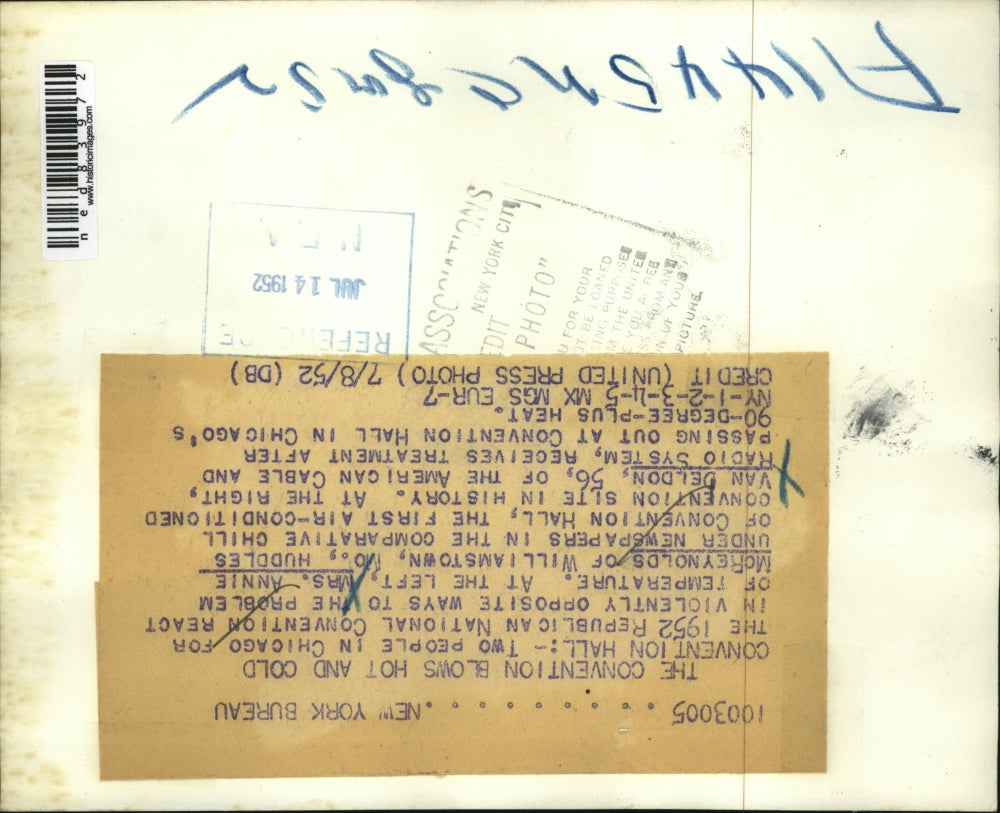 1003005 . . . . . . . . . . . NEW YORK BUREAU
THE CONVENTION BLOWS HOT AND COLD
CONVENTION HALL:- TWO PEOPLE IN CHICAGO FOR
THE 1952 REPUBLICAN NATIONAL CONVENTION REACT
IN VIOLENTLY OPPOSITE WAYS TO THE PROBLEM
OF TEMPERATURE. AT THE LEFT, MRS. ANNIE
MCREYNOLDS OF WILLIAMSTOWN, MO., HUDDLES
UNDER NEWSPAPERS IN THE COMPARATIVE CHILL
OF CONVENTION HALL, THE FIRST AIR-CONDITIONED
CONVENTION SITE IN HISTORY. AT THE RIGHT,
VAN DELDON, 56, OF THE AMERICAN CABLE AND
RADIO SYSTEM, RECEIVES TREATMENT AFTER
PASSING OUT AT CONVENTION HALL IN CHICAGO'S
90-DEGREE-PLUS HEAT.
NY-1-2-3-4-5 MX MGS EUR-7
CREDIT (UNITED PRESS PHOTO) 7/8/52 (DB)
REFERENCE
JUL 14 1952
N.E.A.
NEW YORK CITY
PHOTO"
U FOR YOUR
BE LOANED
THE UNITED
PICTURE.
ned83972
www.historicimages.com